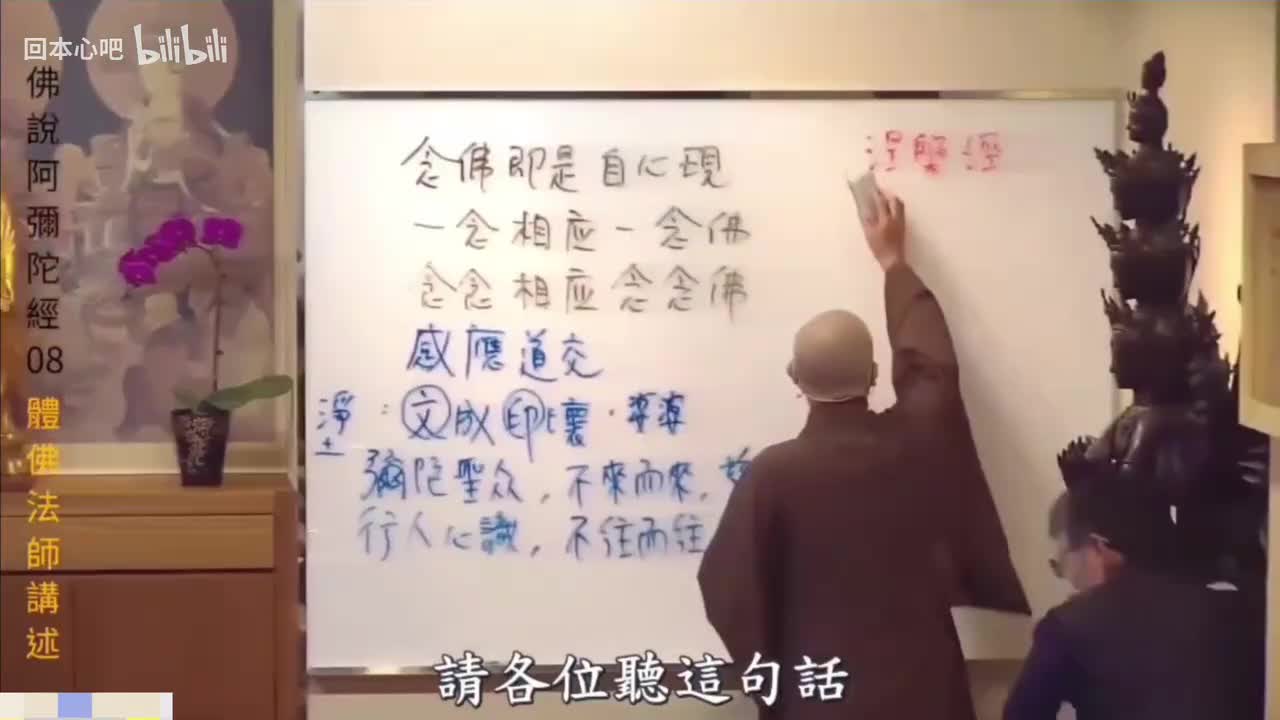 回本心吧 bilibili
佛說阿彌陀經08 體佛法師講述
念佛即是自心現
一念相应一念佛
念念相应念念佛
感應道交
淨土：文成印壞·婆婆
彌陀聖众，不來而來，
行人心識，不往而往
涅槃經
請各位聽這句話